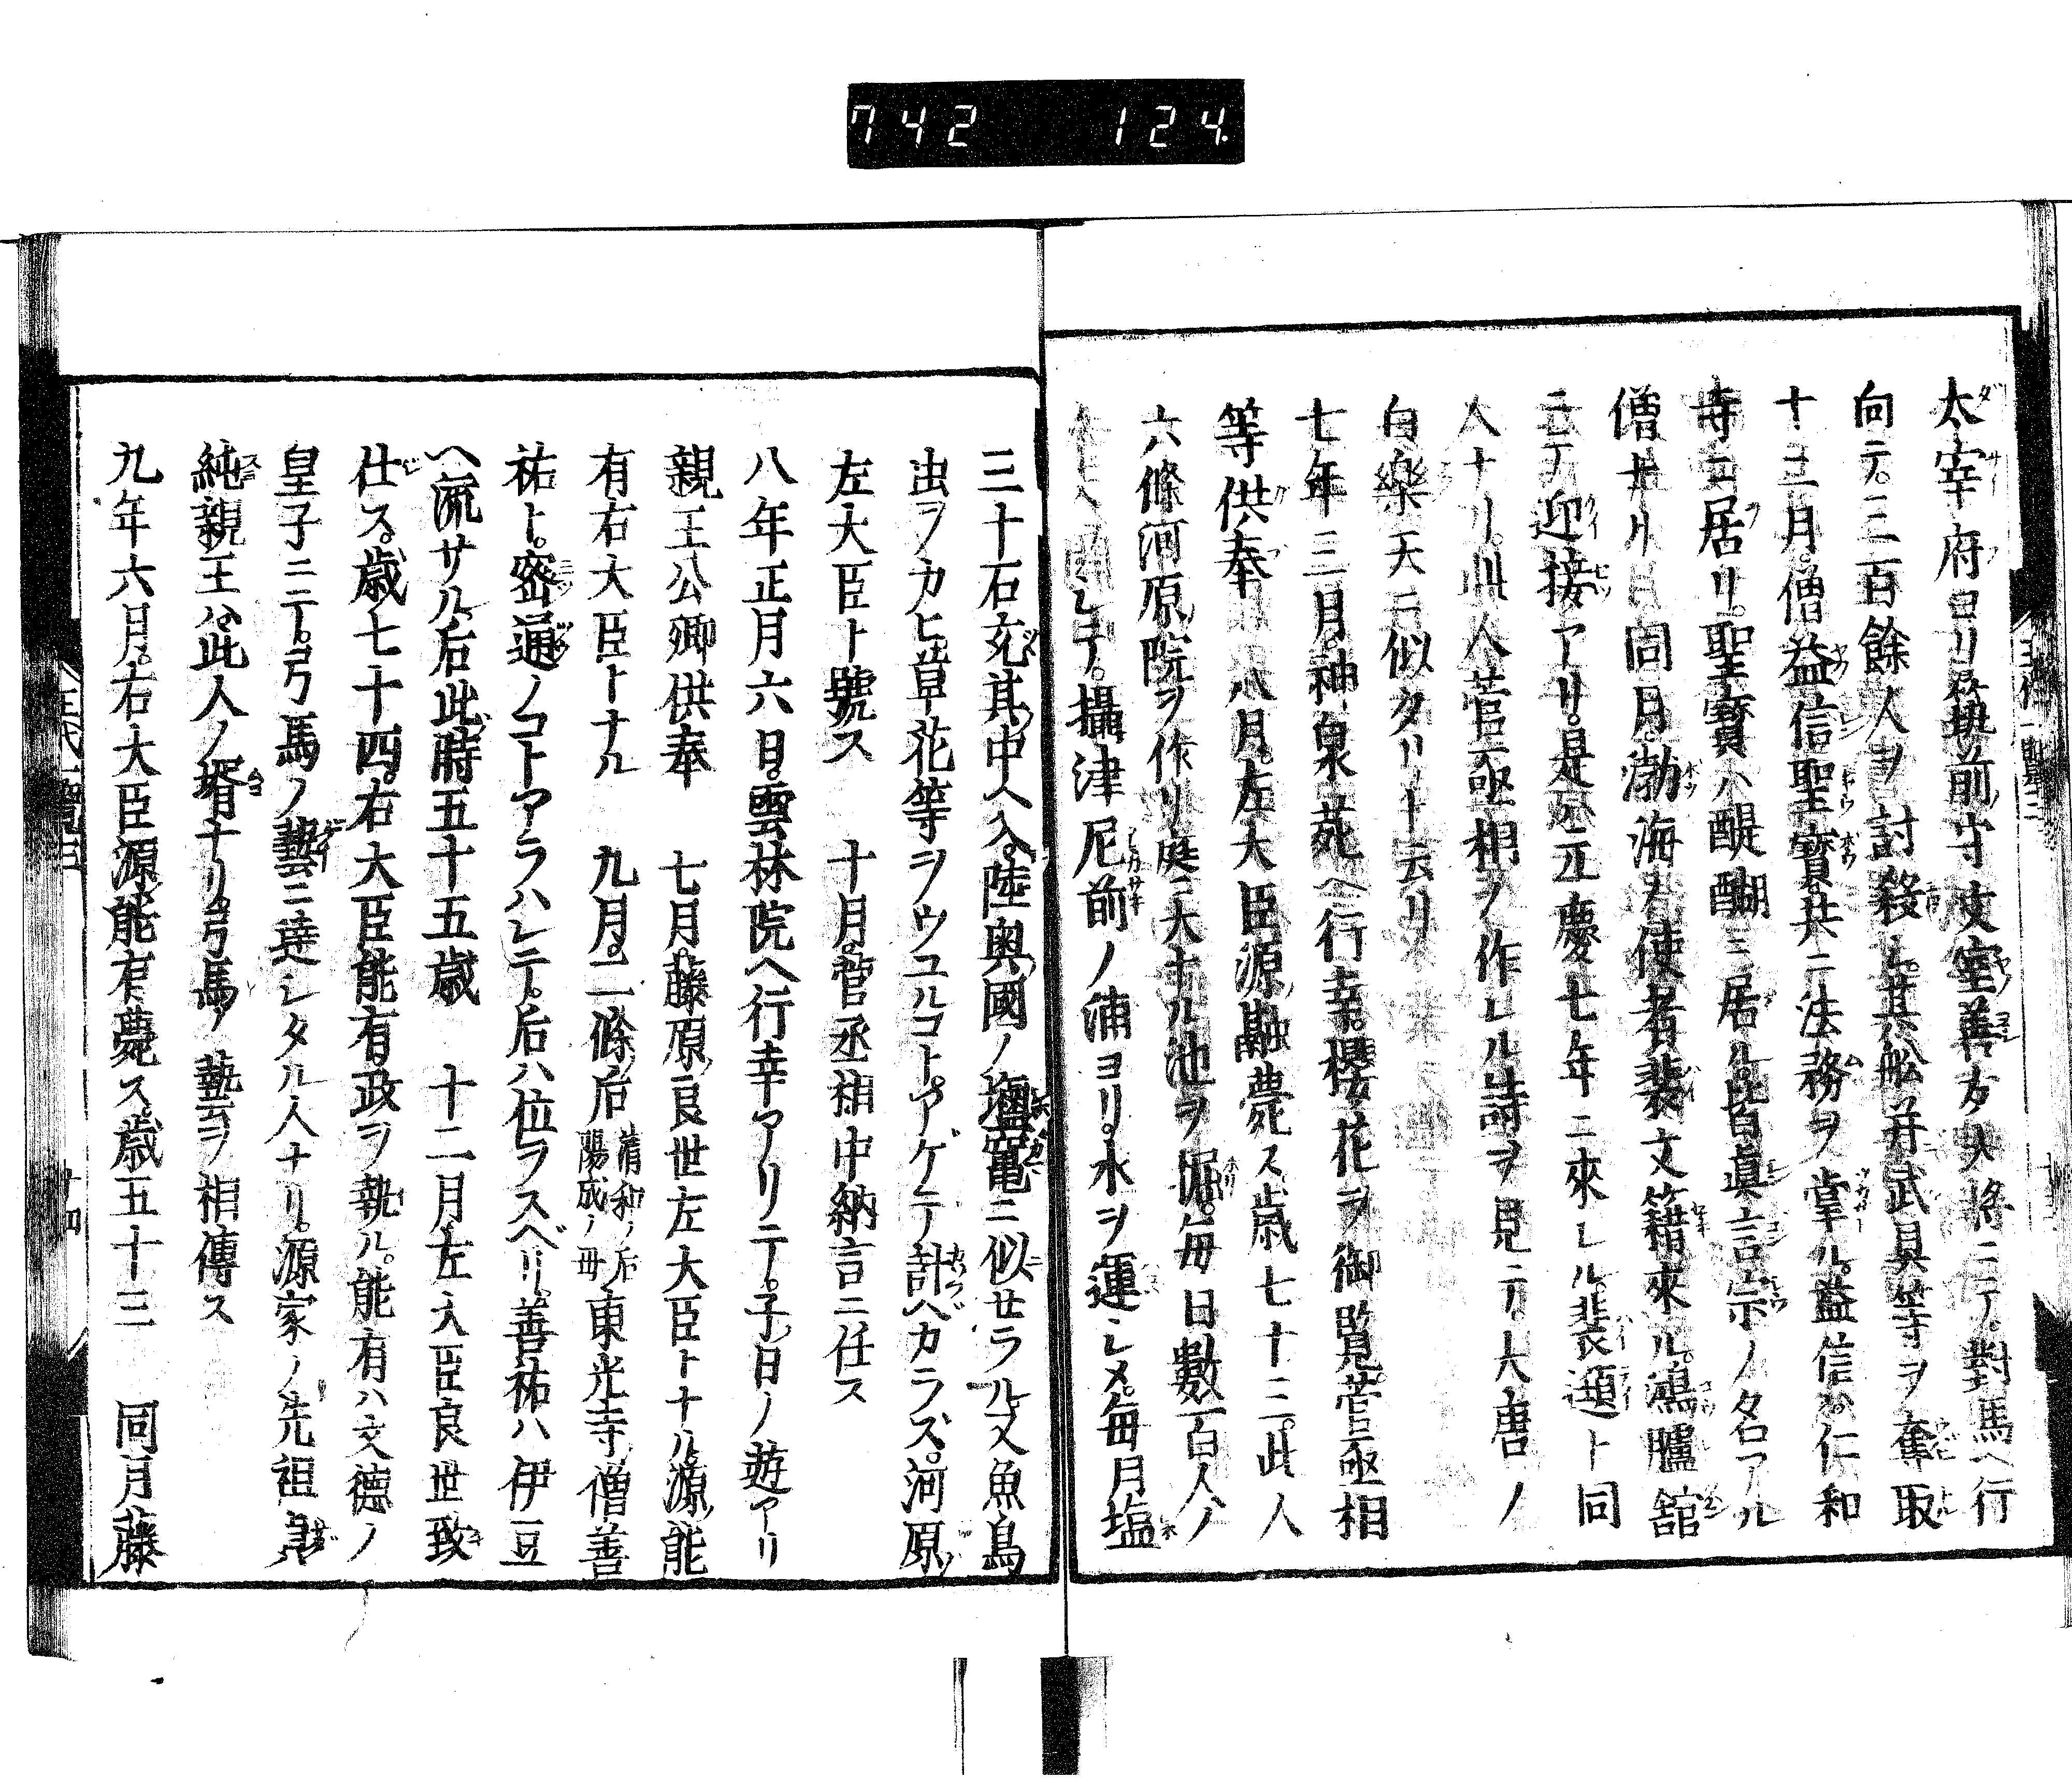 742 124.
太宰府ヨリ筑前守文室善友大将ニテ對馬ヘ行
向テ。三百餘人ヲ討殺シ。其舩并武具等ヲ奪取
十二月。僧益信聖寶。共ニ法務ヲ掌ル。益信ハ。仁和
寺ニ居リ。聖寶ハ醍醐ニ居ル。皆眞言宗ノ名アル
僧ナリ 同月。渤海ノ使者裴文籍來ル。鴻臚舘
ニテ迎接アリ。是ハ元慶七年ニ來レル。裴遡ト同
人ナリ。此人菅丞相ヲ作レル詩ヲ見テ。大唐ノ
白樂天ニ似タリト云リ
七年三月。神泉苑ヘ行幸。櫻花ヲ御覧。菅丞相
等供奉 八月。左大臣源融薨ス歳七十三。此人
六條河原院ヲ作リ庭ニ大ナル池ヲ堀。毎日數百人ノ
シテ。攝津尼前ノ浦ヨリ。水ヲ運シメ。毎月塩
三十石充其中ヘ入。陸奥國ノ塩竃ニ似セラル又魚鳥
虫ヲカヒ草花等ヲウユルコト。アゲテ計ヘカラズ。河原
左大臣ト號ス 十月。菅丞相中納言ニ任ス
八年正月六日。雲林院ヘ行幸アリニテ。子日ノ遊アリ
親王公卿供奉 七月。藤原良世左大臣トナル。源能
有右大臣トナル 九月。二條后 清和ノ后 陽成ノ母 東光寺僧善
祐ト。密通ノコトアラハレテ。后ハ位ヲスベリ。善祐ハ伊豆
ヘ流サル。后此時五十五歳 十二月左大臣良世致
仕ス。歳七十四。右大臣能有。政ヲ執ル。能有ハ文徳ノ
皇子ニテ。弓馬ノ藝ニ達シタル人ナリ。源家ノ先祖貞
純親王ハ。此人ノ壻ナリ。弓馬ノ藝ヲ相傳ス
九年六月。右大臣源能有薨ス。歳五十三 同月藤